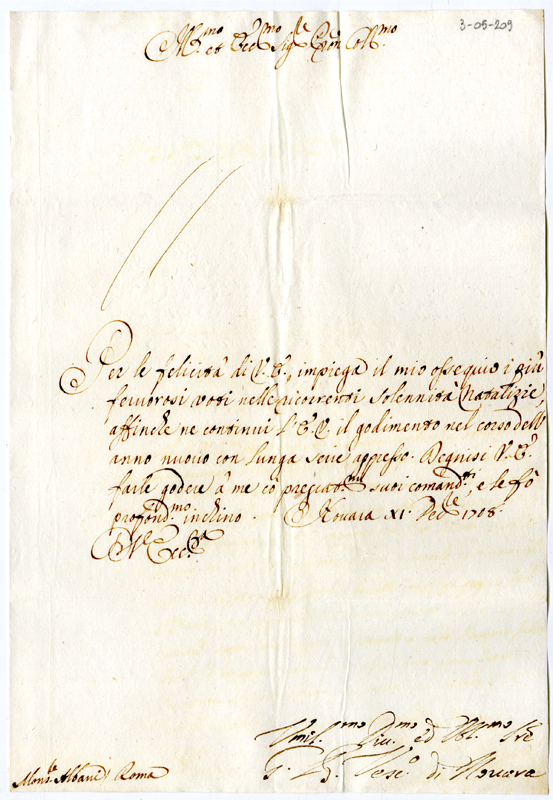 3-05-209
Ill.mo et Ecc.mo Sig.re P'ron Col.mo
Per le felicità di V.E., impiega il mio ossequio i più
fervorosi voti nelle ricorrenti solennità Natalizie,
affinche ne continui l'E.V. il godimento nel corso dell'
anno nuovo con lunga serie appresso. Degnisi V.E.
farle godere à me cò preggiat.mi suoi comand.ti, e le fò
profond.mo inchino. Novara XI. Dec.le 1708.
Umil.mo Div.mo ed Obl.mo Sre
di Novara
Mons.le Albani Roma